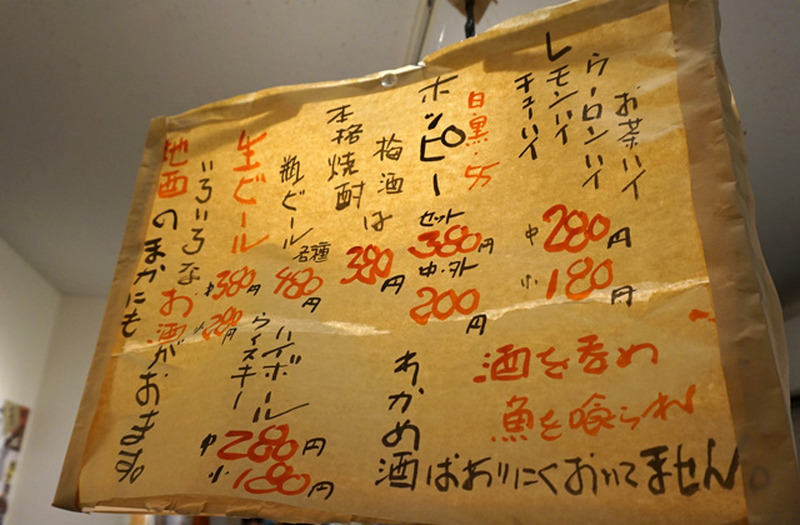 お茶ハイ
ウーロンハイ
レモンハイ
チューハイ
中280円
小180円
白・黒・
ホッピー
セット
380円
中・外
200円
梅酒
本格焼酎は
380円
瓶ビール
各種
480円
生ビール
中380円
小200円
ハイボール
ウイスキー
中280円
小180円
いろいろなお酒がおます。
地酒のほかにも
酒を呑め
魚を喰らわ
わかめ
酒はおりにくおいてません。